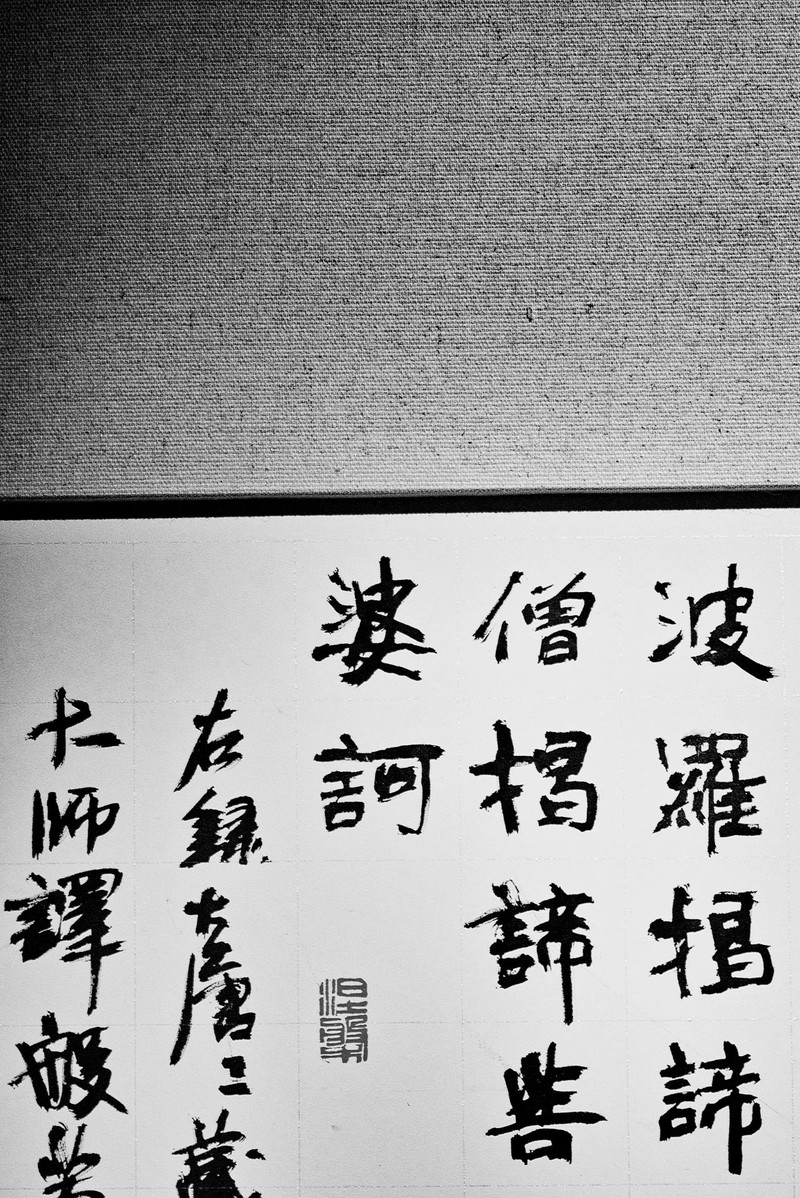 波羅揭諦
僧揭諦菩
婆訶
涅槃
右錄大唐三藏
大師譯般若